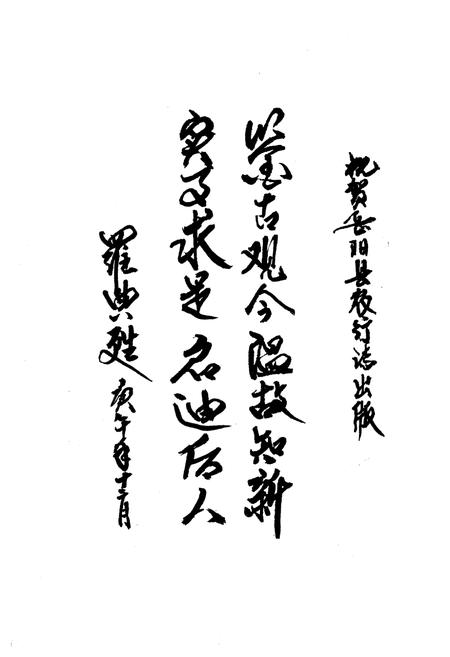 祝贺岳阳县农行志出版
鉴古观今温故知新
实事求是启迪后人
羅典甦
庚午年十二月